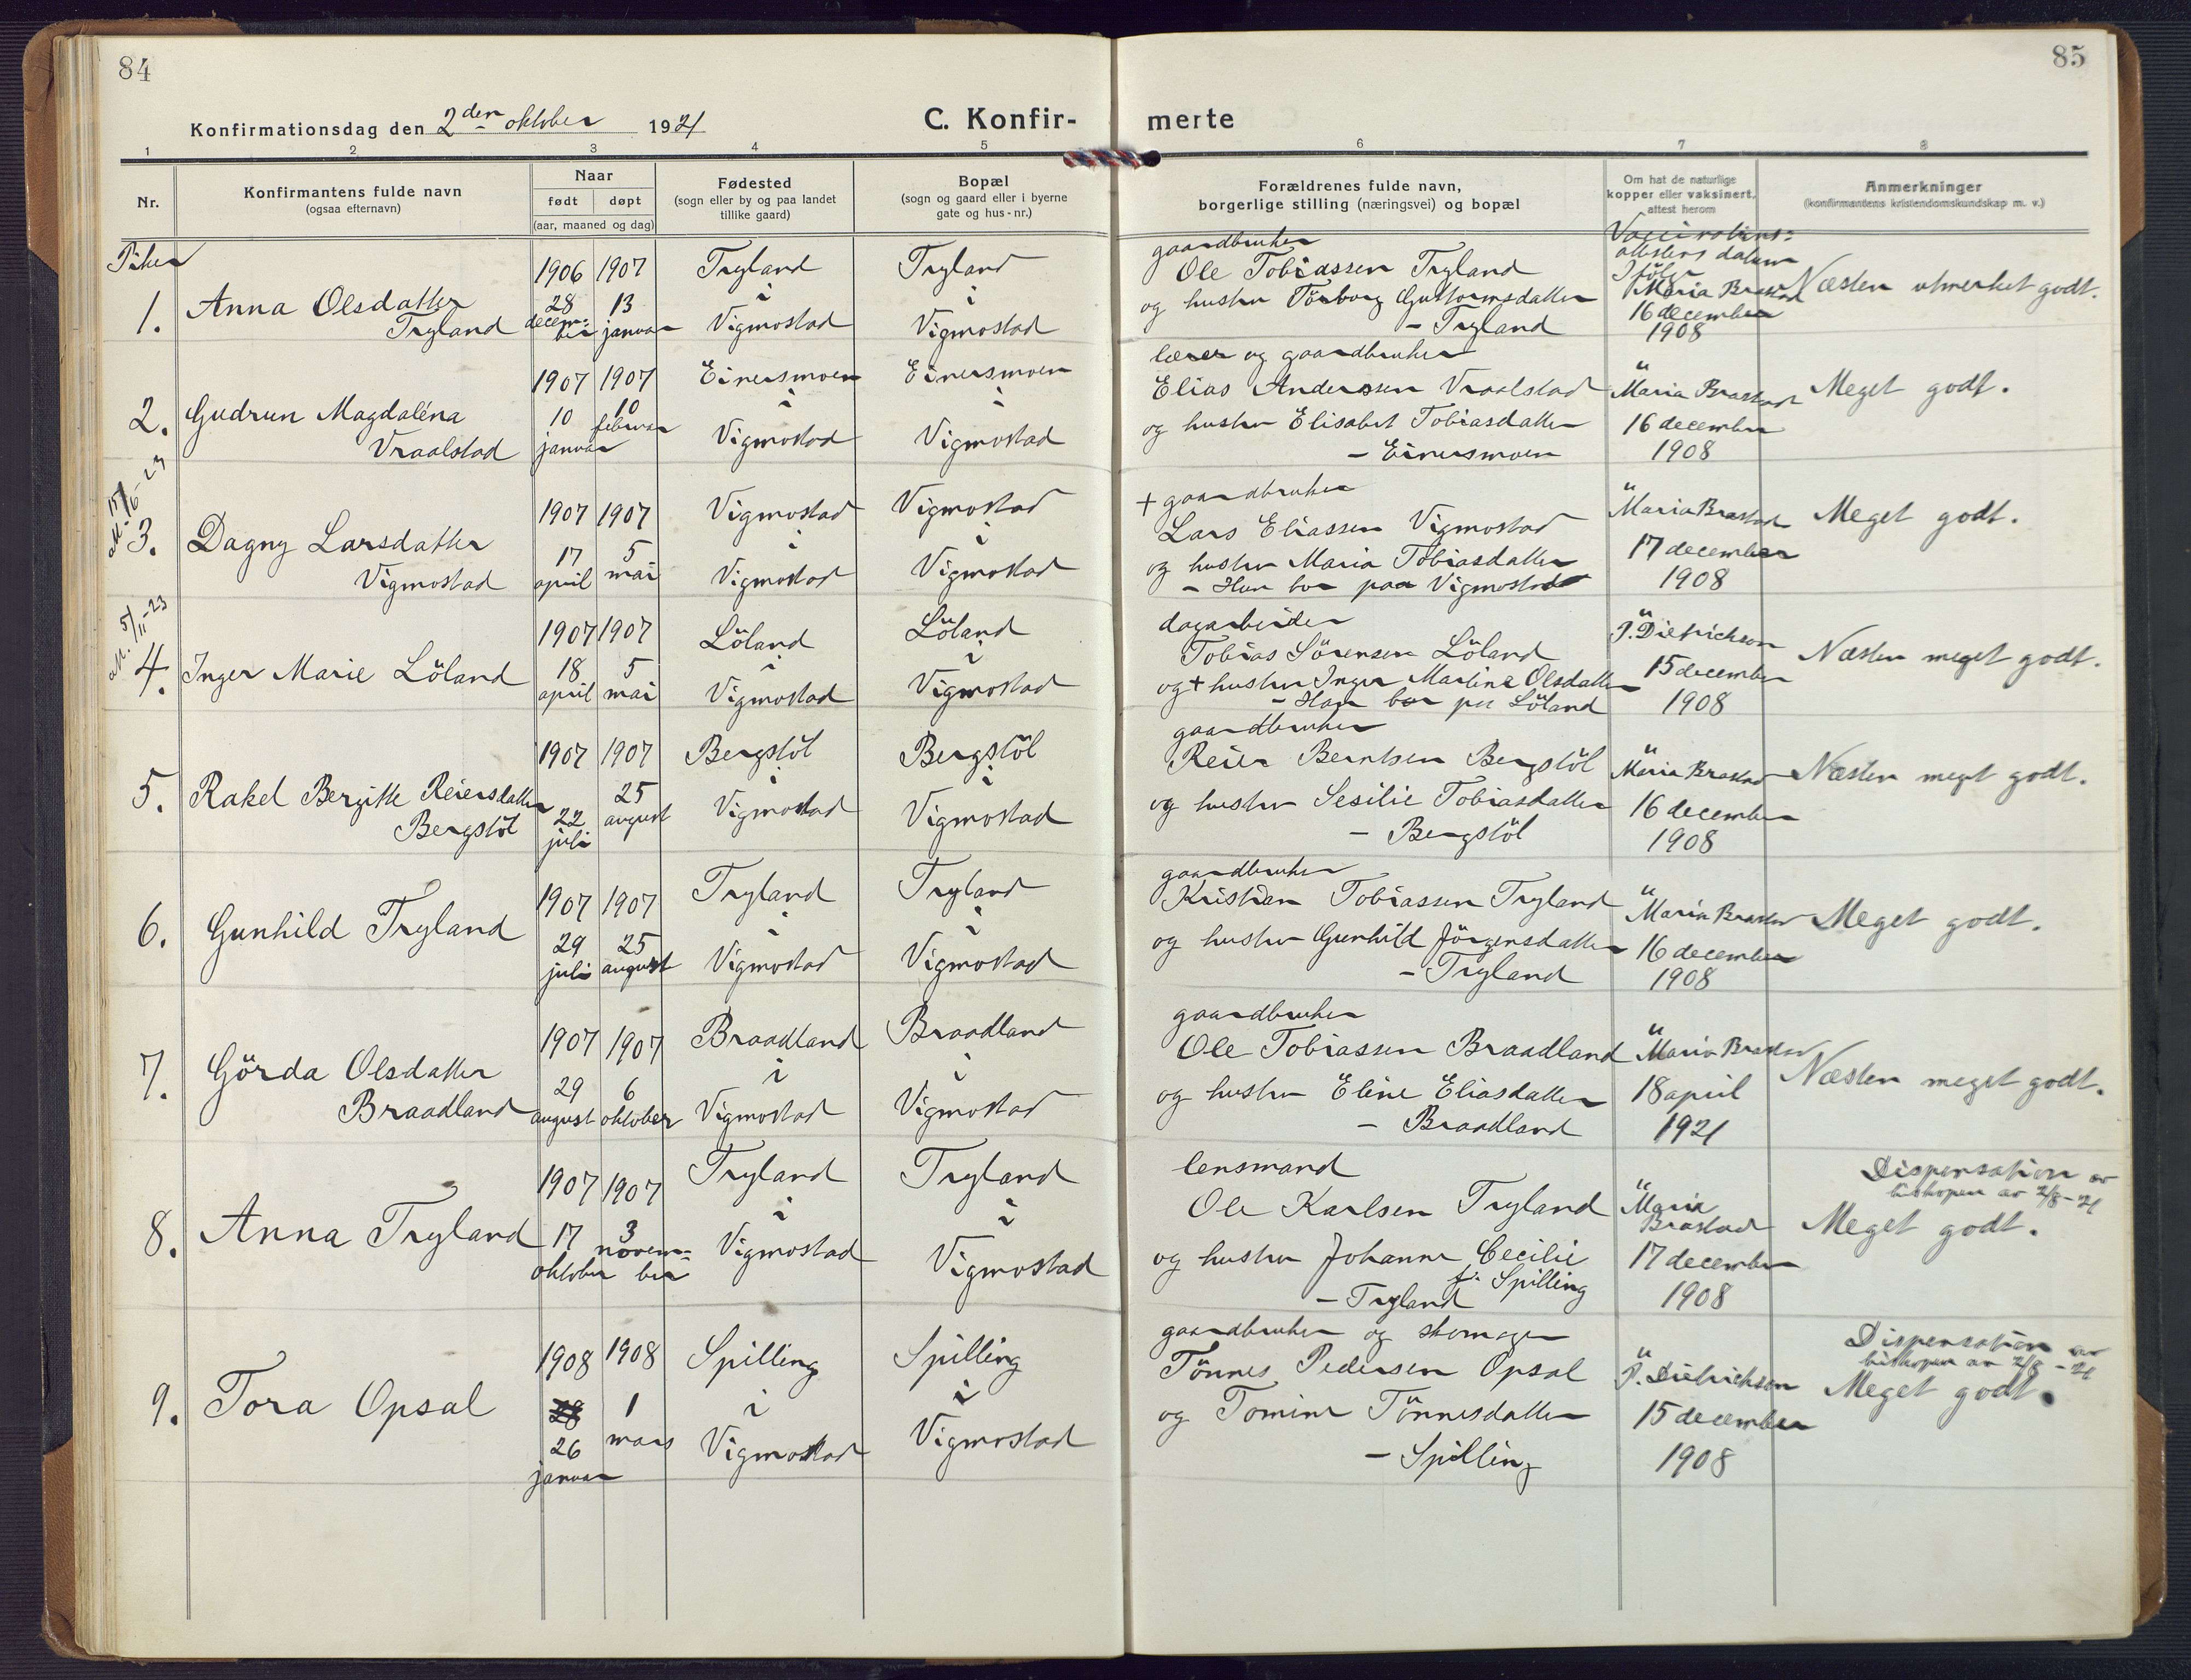 84
85
Konfirmationsdag den 2den oktober 1921
C. Konfir-
merte
1 2 3 4 5 6 7 8
Nr.
Konfirmantens fulde navn
(ogsaa efternavn)
Naar
født døpt
(aar, maaned og dag)
Fødested
(sogn eller by og paa landet
tillike gaard)
Bopæl
(sogn og gaard eller i byerne
gate og hus-nr.)
Forældrenes fulde navn,
borgerlige stilling (næringsvei) og bopæl
Om hat de naturlige
kopper eller vaksinert,
attest herom
Anmerkninger
(konfirmantens kristendomskundskap m. v.)
Piker
1.
Anna Olsdatter
Tryland
1906
28
decem-
ber
1907
13
januar
Tryland
i
Vigmostad
Tryland
i
Vigmostad
gaardbruker
Ole Tobiassen Tryland
og hustru Torborg Guttormsdatter
- Tryland
attestens datum
Maria Brastad
16 december
1908
Næsten utmerket godt.
2.
Gudrun Magdaléna
Vraalstad
1907
10
januar
1907
10
februar
Einersmoen
i
Vigmostad
Einersmoen
i
Vigmostad
lærer og gaardbruker
Elias Anderssen Vraalstad
og hustru Elisabet Tobiasdatter
- Einersmoen
"
Maria Brastad
16 december
1908
Meget godt.
15/6-23
3.
Dagny Larsdatter
Vigmostad
1907
17
april
1907
5
mai
Vigmostad
i
Vigmostad
Vigmostad
i
Vigmostad
+ gaardbruker
Lars Eliassen Vigmostad
og hustru Maria Tobiasdatter
- Hun bor paa Vigmostad
"
Maria Brastad
17 december
1908
Meget godt.
5/11-23
4.
Inger Marie Löland
1907
18
april
1907
5
mai
Löland
i
Vigmostad
Löland
i
Vigmostad
dagarbeider
Tobias Sörensen Löland
og + hustru Inger Martine Olsdatter
- Han bor paa Löland
"
P. Dietrichson
15 december
1908
Næsten meget godt.
5.
Rakel Bergitte Reiersdatter
Bergstöl
1907
22
juli
1907
25
august
Bergstöl
i
Vigmostad
Bergstöl
i
Vigmostad
gaardbruker
Reier Berntsen Bergstöl
og hustru Sesilie Tobiasdatter
- Bergstöl
"
Maria Brastad
16 december
1908
Næsten meget godt.
6.
Gunhild Tryland
1907
29
juli
1907
25
august
Tryland
i
Vigmostad
Tryland
i
Vigmostad
gaardbruker
Kristian Tobiassen Tryland
og hustru Gunhild Jörgensdatter
- Tryland
"
Maria Brastad
16 december
1908
Meget godt.
7.
Görda Olsdatter
Braadland
1907
29
august
1907
6
oktober
Braadland
i
Vigmostad
Braadland
i
Vigmostad
gaardbruker
Ole Tobiassen Braadland
og hustru Eline Eliasdatter
- Braadland
"
Maria Brastad
18 april
1921
Næsten meget godt.
8.
Anna Tryland
1907
17
oktober
1907
3
novem-
ber
Tryland
i
Vigmostad
Tryland
i
Vigmostad
lensmand
Ole Karlsen Tryland
og hustru Johanne Cecilie
f. Spilling
- Tryland
"
Maria
Brastad
17 december
1908
Dispensation av
biskopen av 2/8-21
Meget godt.
9.
Tora Opsal
1908
28
26
januar
1908
1
mars
Spilling
i
Vigmostad
Spilling
i
Vigmostad
gaardbruker og skomager
Tönnes Pedersen Opsal
og Tomine Tönnesdatter
- Spilling
"
P. Dietrichson
15 december
1908
Dispensation av
biskopen av 2/8-21
Meget godt.